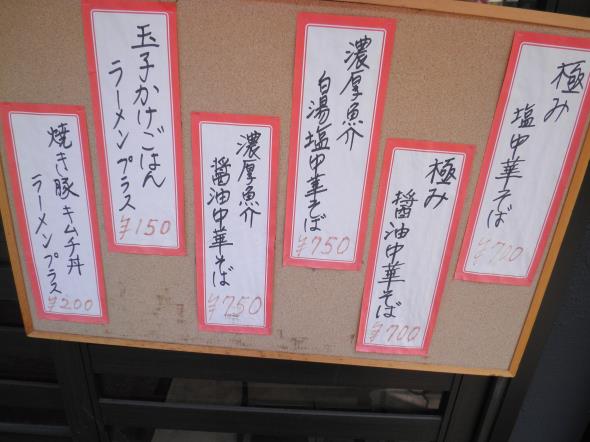 極み
塩中華そば
¥700
極み
醤油中華そば
¥700
濃厚魚介
白湯塩中華そば
¥750
濃厚魚介
醤油中華そば
¥750
玉子かけごはん
ラーメンプラス
¥150
焼き豚キムチ丼
ラーメンプラス
¥200